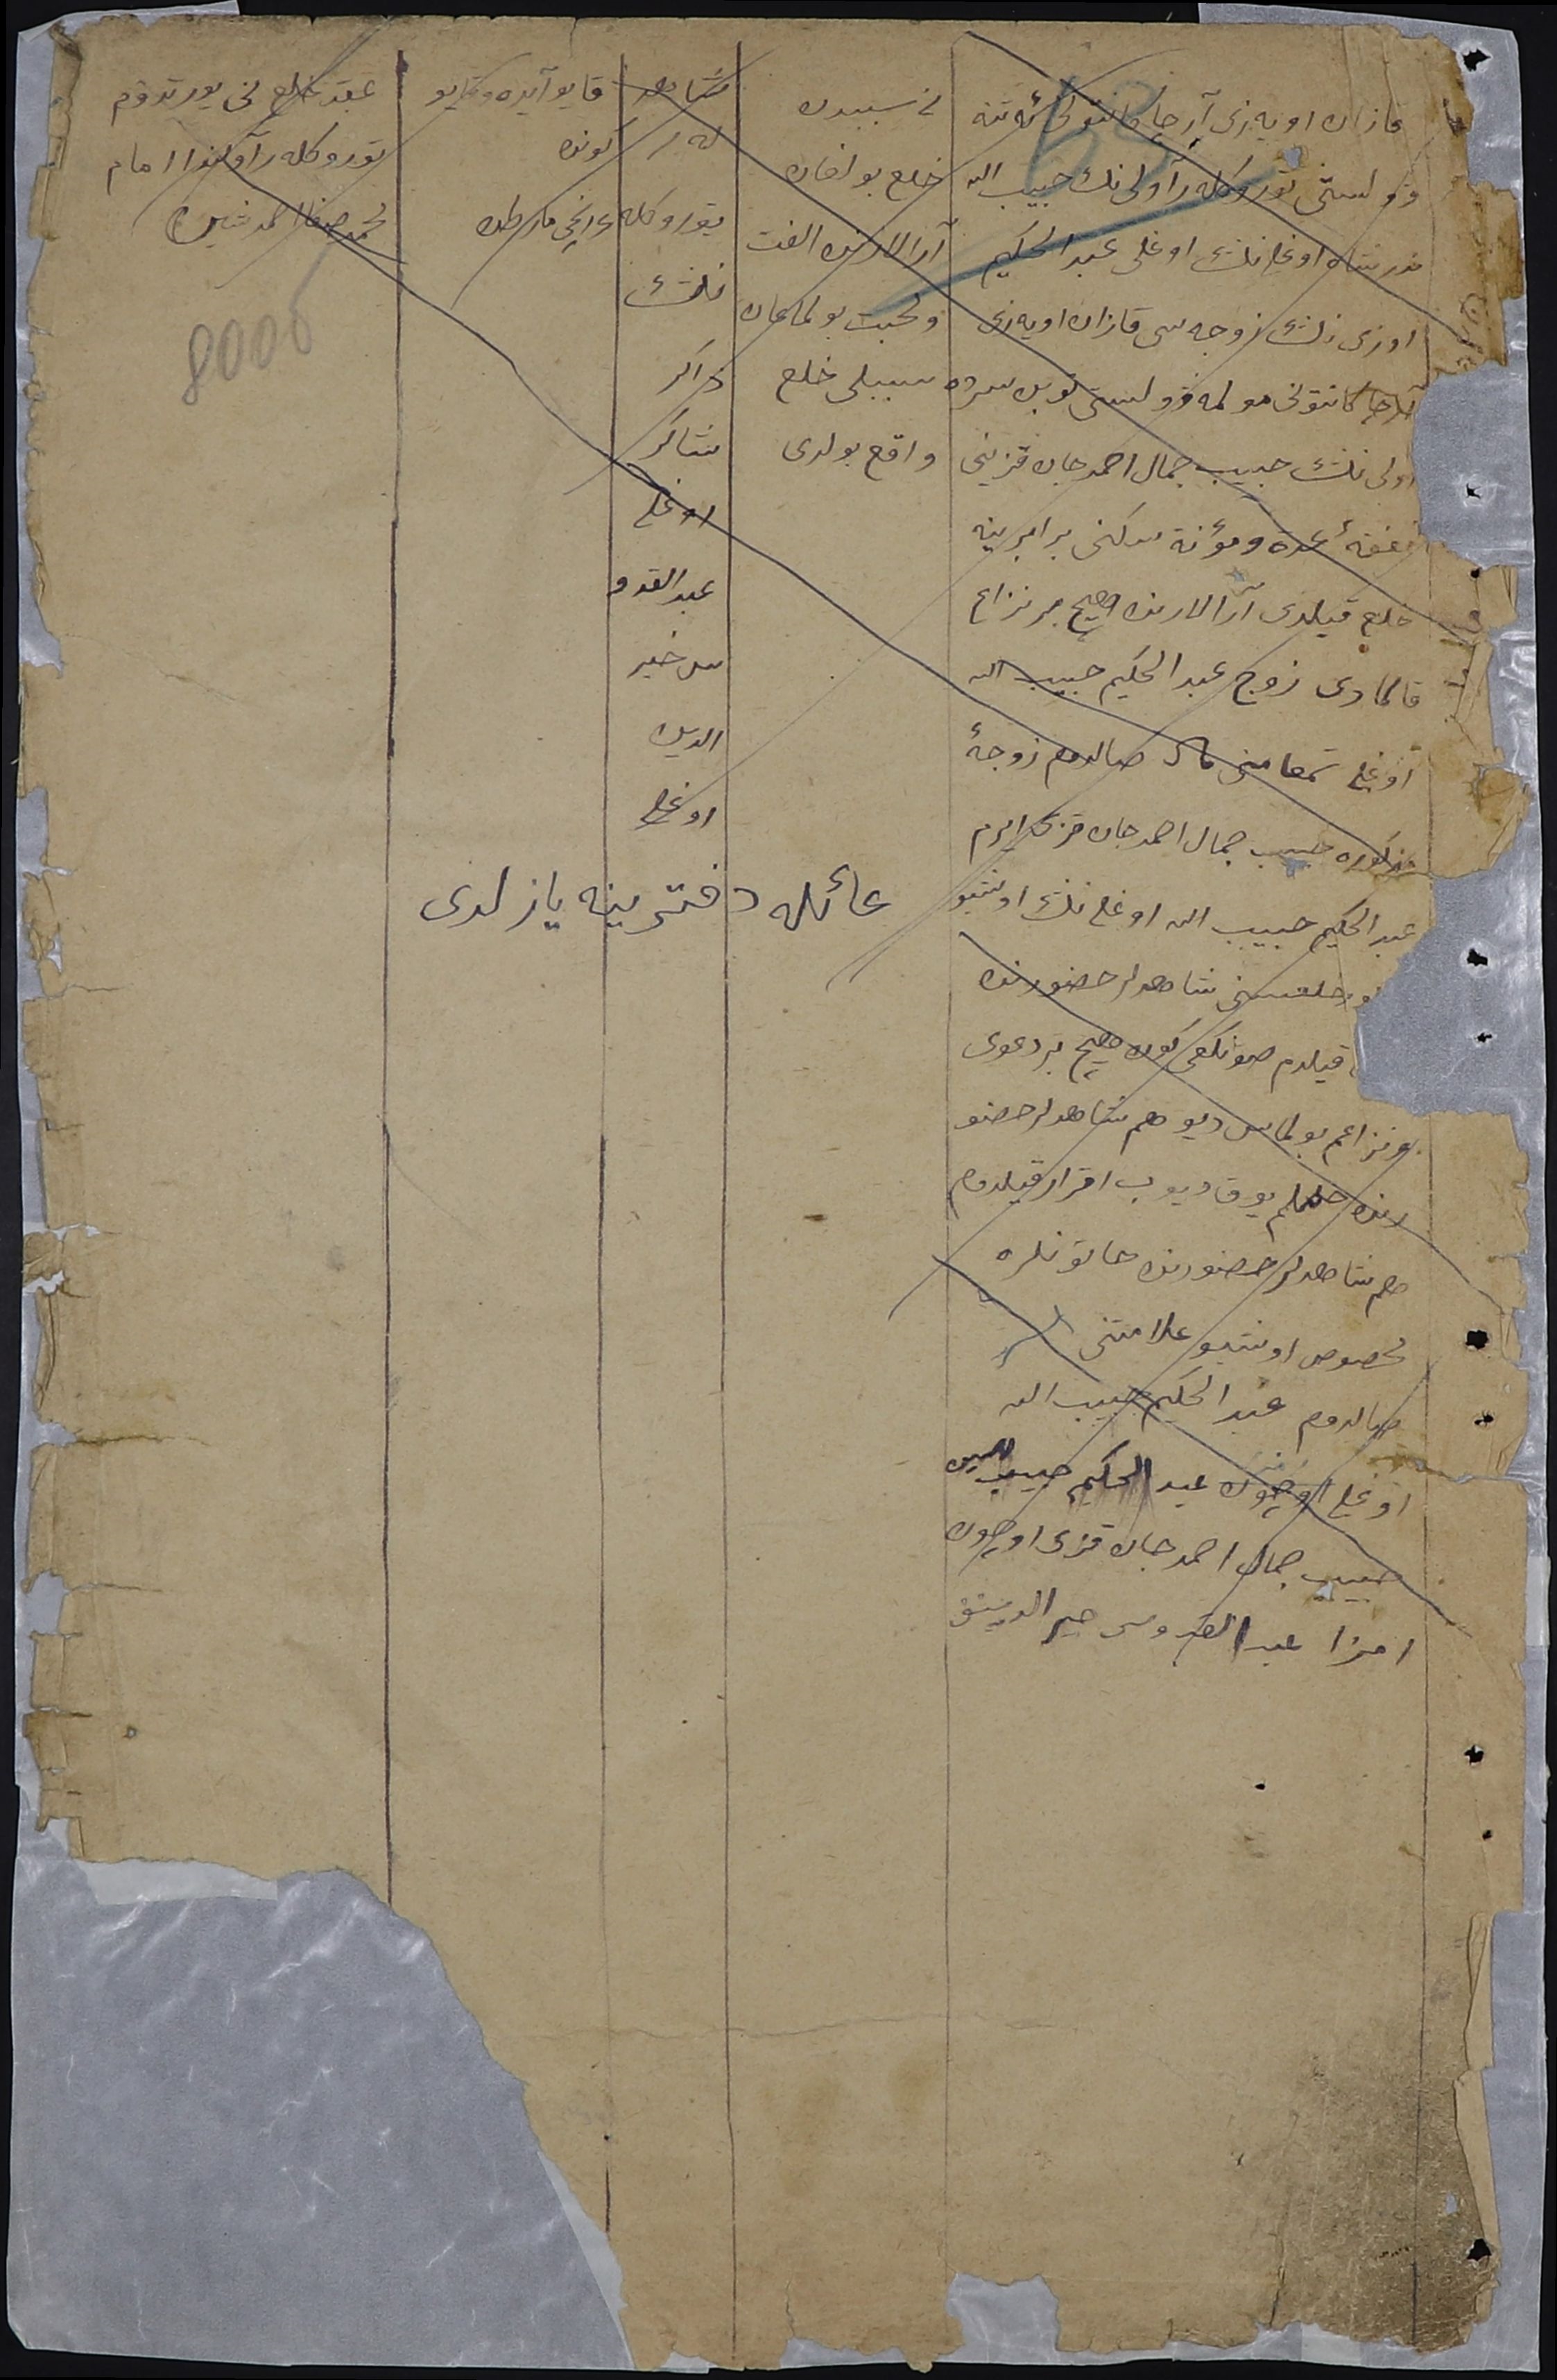 قازان اویه‌زی آرچا کانتونی ئه‌تنه
وولستی توروکله‌ر آولی ننك حبیب الله
اوغلی ننك اوغلی عبد الحکیم
اوزی ننك زوجه سی قازان اویه‌زی
آرچا کانتونی مولمه وولستی
اولی ننك حبیب جمال احمدجان قزینی
نفقهٔ عدة ومؤنة سکنی برابرینه
خلع قیلدی آرالارنده هیچ بر نزاع
قالمادی زوج عبد الحکیم حبیب الله
اوغلی تمغامنی صالدوم زوجهٔ
مذکوره حبیب جمال احمدجان قزی
عبد الحکیم حبیب الله اوغلی ننك اوشبو
شاهدلر حضورنده
قیلدم صونکغی کون هیچ بر دعوی
ونزاعم بولماس دیو هم شاهدلر حضو
رنده یوق دیوب اقرار قیلدوم
هم شاهدلر حضورنده خاتونلره
مخصوص اوشبو علامتنی
صالدوم عبد الحکیم حبیب الله
اوغلی اوچون عبد الحکیم
حبیب جمال احمدجان قزی اوچون
امزا عبد القدوس خیر الدینف
نی سببدن
خلع بولغان
آرالارنده الفت
ومحبت بولماغان
سببلی خلع
واقع بولدی
شاهد
لر
توروکله
ننك
ذاکر
شاکر
اوغلی
عبد القدو
س خیر
الدین
اوغلی
قایو آیده وقایو
کونده
مارطده
عقد خلع نی یورتدوم
توروکله‌ر آولندا امام
محمد صفا
8000
عائله دفترینه یازلدی